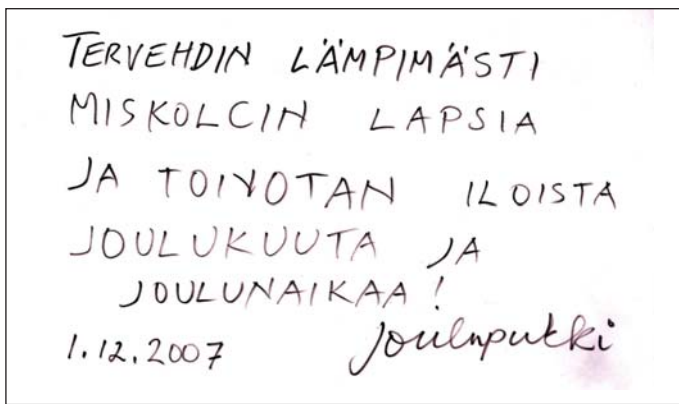 TERVEHDIN LÄMPIMÄSTI
MISKOLCIN LAPSIA
JA TOIVOTAN ILOISTA
JOULUKUUTA JA
JOULUNAIKAA!
1.12.2007 Joulupukki